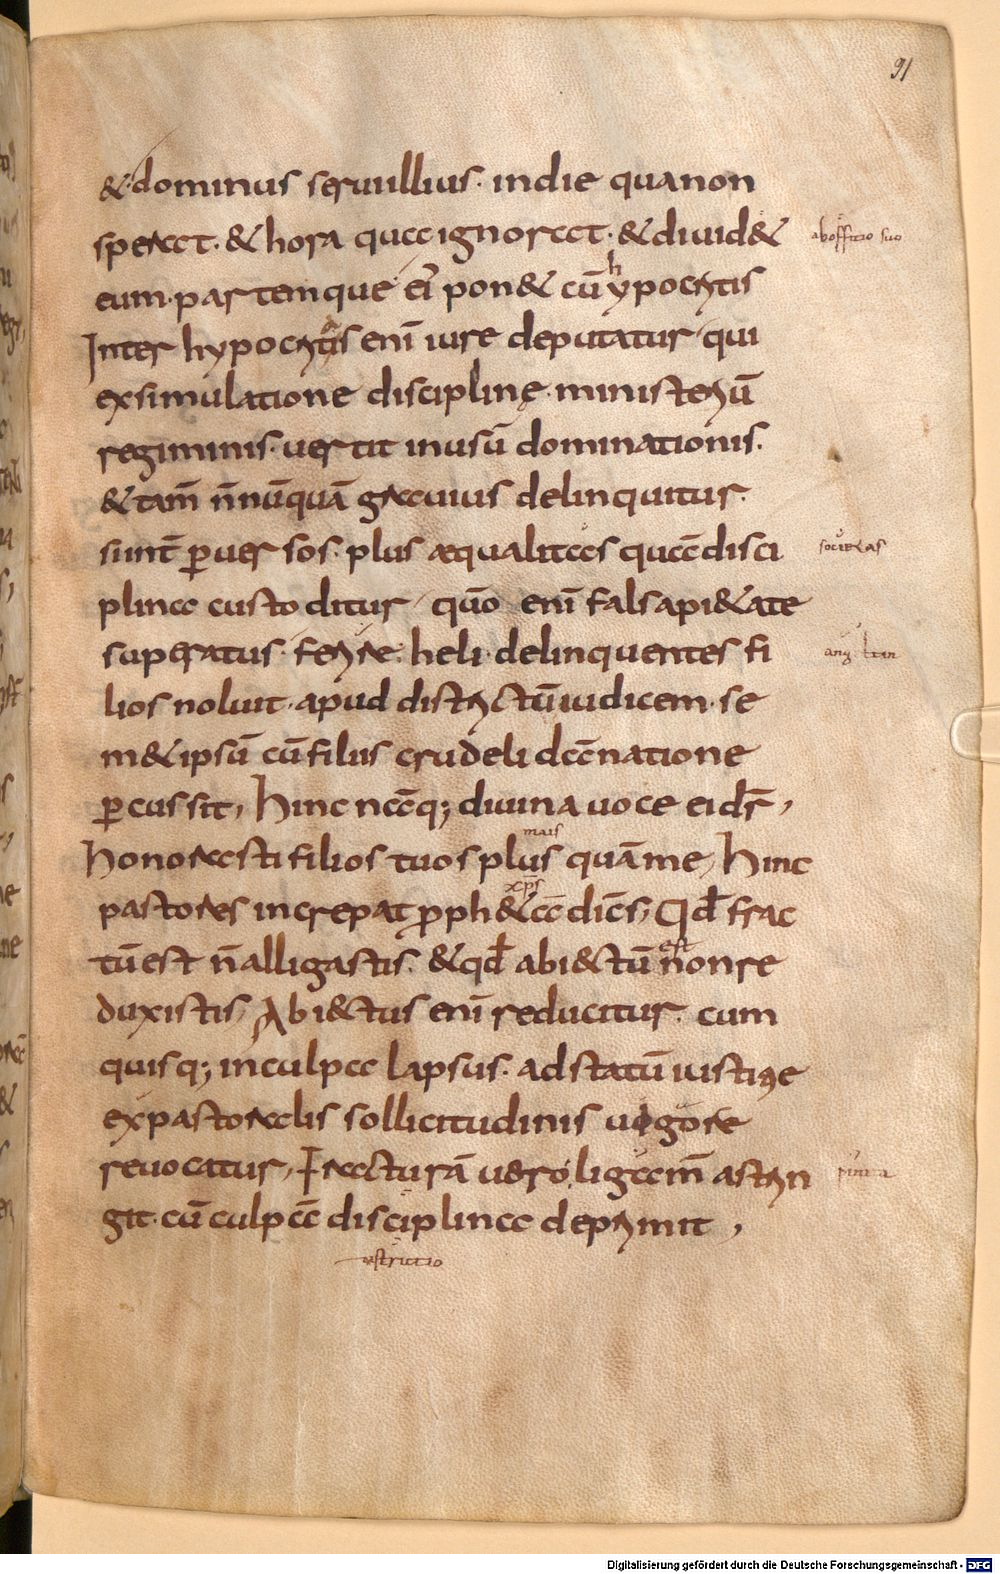 91
& dominus serui illius· in die qua non
speret· & hora qua ignoret· & diuid&
ab officio suo
eum· partemque ei pon& cū hypocritis
Inter hypocritis enī iure deputatur· qui
ex simulatione disciplinę· ministeriū
regiminis· uertit in usū dominationis·
& tam̄ n̄nūquā grauius delinquitur·
sunt̄ ꝑuersos· plus æqualitas quā disci
societas
plina custoditur· quō enī falsa pi&ate
superatus· ferire· heli· delinquentes fi
lios noluit· apud districtū iudicem· se
m&ipsū cū filiis crudeli dāpnatione
ꝑcussit, Hinc nāq; diuina uoce ei dr̄,
mais
Honorasti filios tuos plus quā me, Hinc
xp̄s
pastores increpat ꝓph&ā dicēs, Qd̄ frac
est
tū est n̄ alligastis· & qd̄ abi&tū non re
duxistis, Abi&tus enī reducitur· cum
quisq; in culpa lapsus· ad statū iustitie
ex pastoralis sollicitudinis uigore
reuocatur, Fracturā uero ligam̄ astrin
git· cū culpā disciplina deprimit,